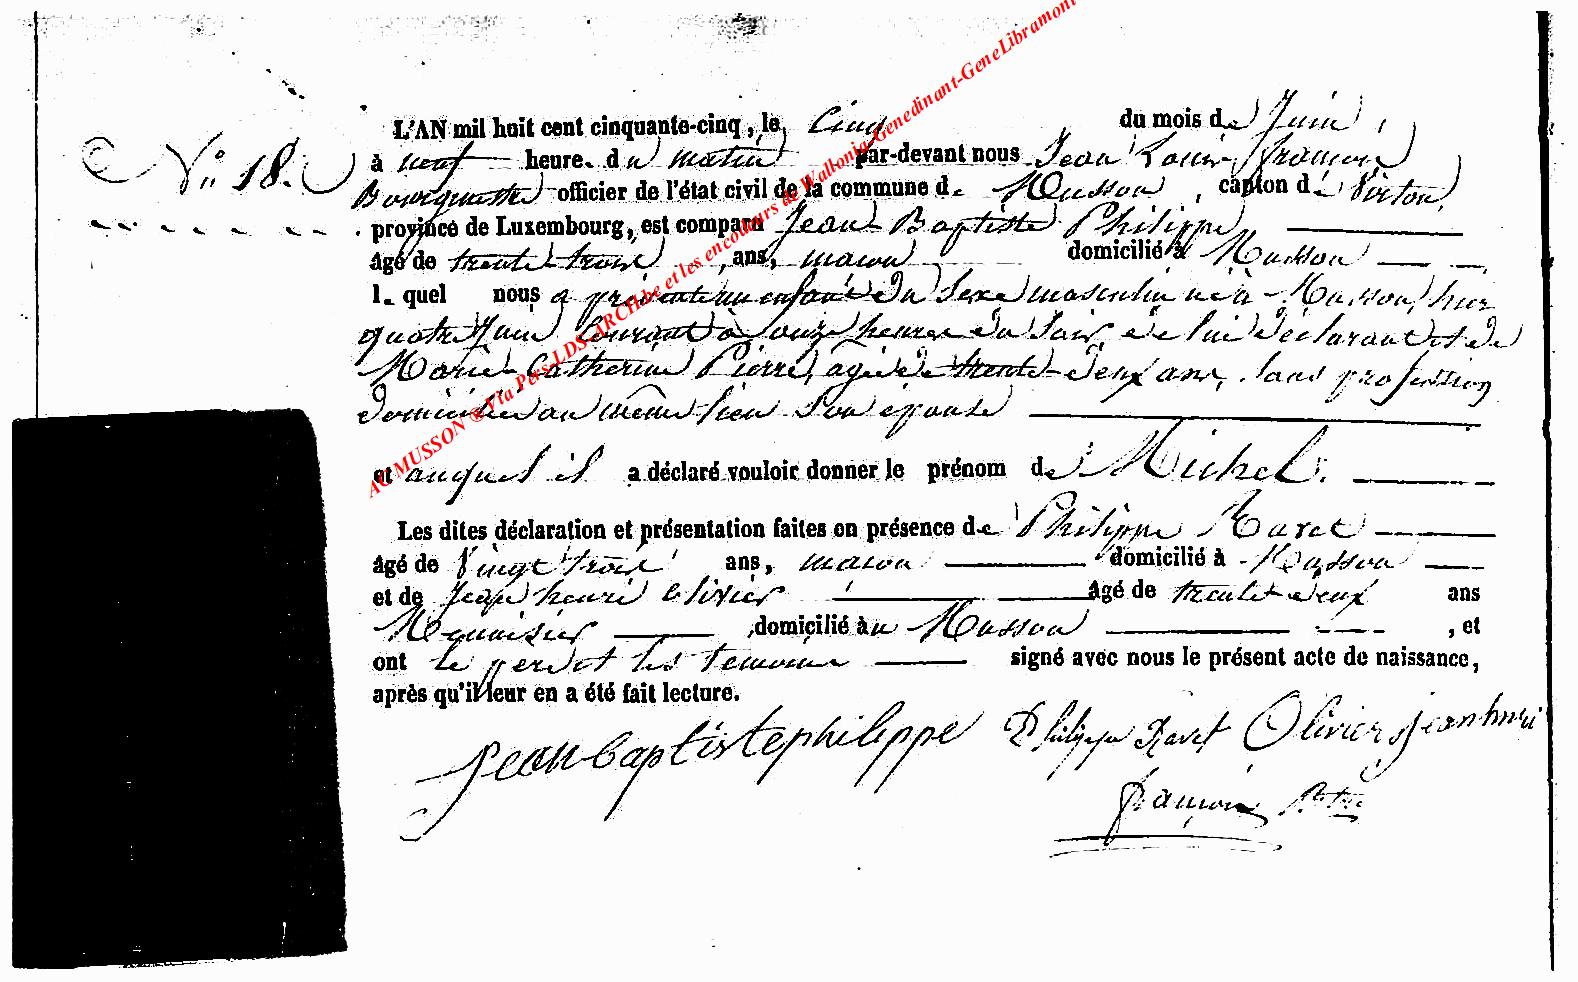 N° 18.
L'AN mil huit cent cinquante-cinq, le Cinq du mois de Juin,
à neuf heure. du matin par-devant nous Jean Louis, François
Bourguette officier de l'état civil de la commune de Musson, canton de Virton,
province de Luxembourg, est comparu Jean-Baptiste Philippe
âgé de trente-trois, ans, macon domicilié à Musson
l. quel nous a présenté un enfant du sexe masculin né à Musson, hier
quatre Juin Courant à onze heures du soir, de lui déclarant et de
Marie-Catherine Pierre, agée de trente-deux ans, sans profession
domiciliée au même lieu son épouse
et auquel il a déclaré vouloir donner le prénom de Michel.
Les dites déclaration et présentation faites en présence de Philippe Ravet
âgé de Vingt trois ans, macon domicilié à Musson
et de Jean henri Olivier âgé de trente-deux ans
Menuisier, domicilié à Musson, et
ont le père et les temoins signé avec nous le présent acte de naissance,
après qu'il leur en a été fait lecture.
jean baptiste philippe Philippe Ravet Olivier jean henri
françois
AC MUSSON @ Via Pers-LDS-ARCH.be et les encodeurs de Wallonia-Genedinant-GeneLibramont